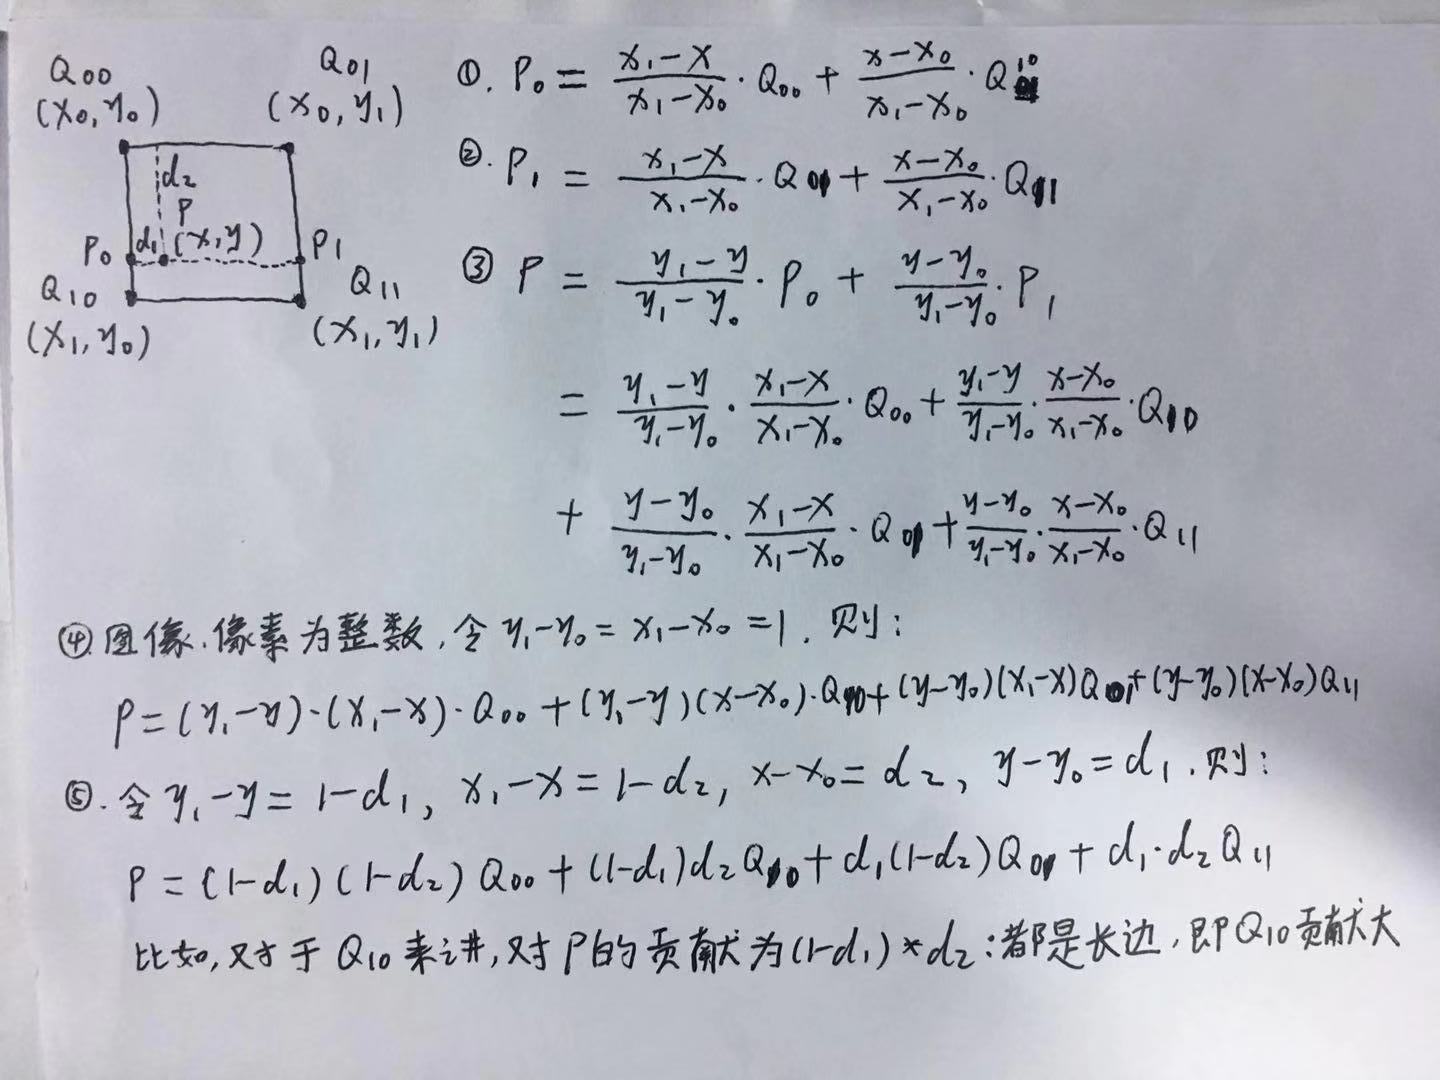 Q₀₀ Q₀₁
(x₀, y₀) (x₀, y₁)
d₂
P
P₀ d₁ (x, y) P₁
Q₁₀ Q₁₁
(x₁, y₀) (x₁, y₁)
①. P₀ = (x₁-x)/(x₁-x₀) · Q₀₀ + (x-x₀)/(x₁-x₀) · Q₁₀
②. P₁ = (x₁-x)/(x₁-x₀) · Q₀₁ + (x-x₀)/(x₁-x₀) · Q₁₁
③ P = (y₁-y)/(y₁-y₀) · P₀ + (y-y₀)/(y₁-y₀) · P₁
= (y₁-y)/(y₁-y₀) · (x₁-x)/(x₁-x₀) · Q₀₀ + (y₁-y)/(y₁-y₀) · (x-x₀)/(x₁-x₀) · Q₁₀
+ (y-y₀)/(y₁-y₀) · (x₁-x)/(x₁-x₀) · Q₀₁ + (y-y₀)/(y₁-y₀) · (x-x₀)/(x₁-x₀) · Q₁₁
④图像.像素为整数,令 y₁-y₀ = x₁-x₀ = 1. 则:
P = (y₁-y)·(x₁-x)·Q₀₀ + (y₁-y)(x-x₀)·Q₁₀ + (y-y₀)(x₁-x)Q₀₁ + (y-y₀)(x-x₀)Q₁₁
⑤. 令 y₁-y = 1-d₁, x₁-x = 1-d₂, x-x₀ = d₂, y-y₀ = d₁. 则:
P = (1-d₁)(1-d₂)Q₀₀ + (1-d₁)d₂Q₁₀ + d₁(1-d₂)Q₀₁ + d₁·d₂Q₁₁
比如,对于Q₁₀来讲,对P的贡献为(1-d₁)*d₂:都是长边,即Q₁₀贡献大